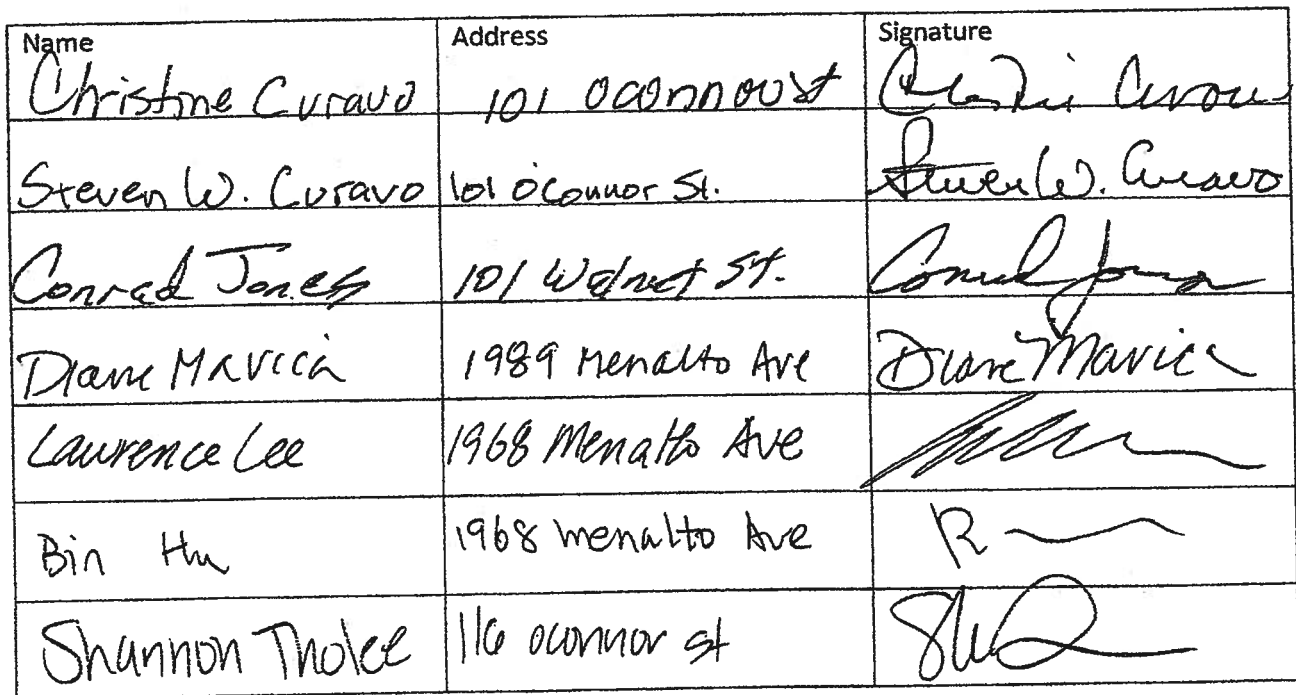 Name Address Signature
Christine Curavo 101 Oconnor st
Steven W. Curavo 101 O'Connor St. Steven W. Curavo
Conrad Jones 101 Walnut St. Conrad Jones
Diane Mavica 1989 Menalto Ave Diane Mavica
Lawrence Lee 1968 Menalto Ave
Bin Hu 1968 Menalto Ave
Shannon Tholee 116 oconnor st